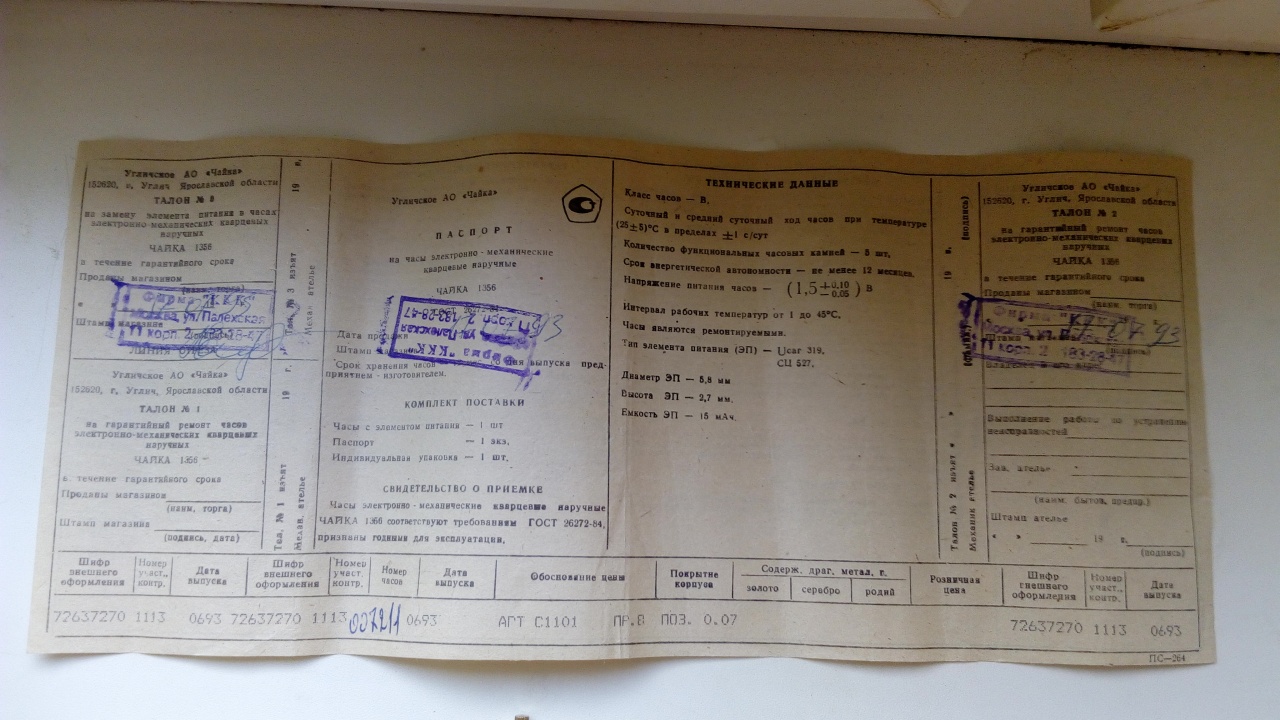 Угличское АО «Чайка»
152620, г. Углич Ярославской области
ТАЛОН № 3
на замену элемента питания в часах
электронно-механических кварцевых
наручных
ЧАЙКА 1356
в течение гарантийного срока
Проданы магазином
(наим. торга)
Фирма "ККК"
Москва ул Палехская
11 корп. 2 183-28-47
Штамп магазина
ЛИНИЯ ОТРЕЗА
Угличское АО «Чайка»
152620, г. Углич, Ярославской области
ТАЛОН № 1
на гарантийный ремонт часов
электронно-механических кварцевых
наручных
ЧАЙКА 1356
в течение гарантийного срока
Проданы магазином
(наим. торга)
Штамп магазина
(подпись, дата)
Тал. № 1 изъят
19 г.
Механ. ателье
№ 3 изъят
19 г.
Механ. ателье
Угличское АО «Чайка»
ПАСПОРТ
на часы электронно-механические
кварцевые наручные
ЧАЙКА 1356
Дата продажи
Штамп магазина
Фирма "ККК"
ул Палехская
Срок хранения часов
дня выпуска пред-
приятием-изготовителем.
КОМПЛЕКТ ПОСТАВКИ
Часы с элементом питания — 1 шт
Паспорт — 1 экз.
Индивидуальная упаковка — 1 шт.
СВИДЕТЕЛЬСТВО О ПРИЕМКЕ
Часы электронно-механические кварцевые наручные
ЧАЙКА 1356 соответствуют требованиям ГОСТ 26272-84,
признаны годными для эксплуатации.
ТЕХНИЧЕСКИЕ ДАННЫЕ
Класс часов — В,
Суточный и средний суточный ход часов при температуре
(25±5)°С в пределах ±1 с/сут
Количество функциональных часовых камней — 5 шт,
Срок энергетической автономности — не менее 12 месяцев.
Напряжение питания часов — (1,5 +0,10 −0,05) В
Интервал рабочих температур от 1 до 45°С.
Часы являются ремонтируемыми.
Тип элемента питания (ЭП) — Ucar 319,
СЦ 527.
Диаметр ЭП — 5,8 мм
Высота ЭП — 2,7 мм.
Емкость ЭП — 15 мАч.
Талон № 2 изъят « »
19 г.
(подпись)
Механик ателье
Угличское АО «Чайка»
152620, г. Углич, Ярославской области
ТАЛОН № 2
на гарантийный ремонт часов
электронно-механических кварцевых
наручных
ЧАЙКА 1356
в течение гарантийного срока
Проданы магазином
(наим. торга)
Фирма "ККК"
Москва ул
11 корп. 2 183-28
Штамп
(подпись)
Владелец и его адрес
Выполнение работы по устранению
неисправностей
Зав. ателье
(наим. бытов. предпр.)
Штамп ателье
« » 19 г.
(подпись)
Шифр внешнего оформления Номер участ., контр. Дата выпуска Шифр внешнего оформления Номер участ. контр. Номер часов Дата выпуска Обоснование цены Покрытие корпуса Содерж. драг, метал, г. золото серебро родий Розничная цена Шифр внешнего оформления Номер участ., контр. Дата выпуска
72637270 1113 0693 72637270 1113 0693 АРТ С1101 ПР.8 ПОЗ. 0.07 72637270 1113 0693
ПС—264